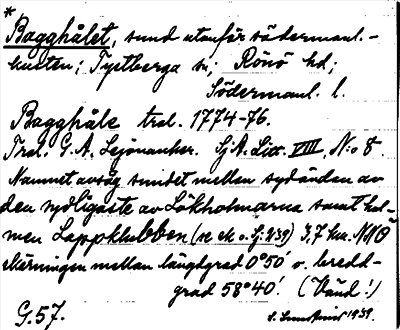 *
Bagghålet, sund utanför södermanl.-
kusten; Tystberga sn; Rönö hd;
Södermanl. l.
Bagghåle tral. 1774-76.
Tral. G. A. Lejonancker. Sj. A. Litt. VIII, N:o 8.
Namnet avsåg sundet mellan sydändan av
den sydligaste av Lökholmarna samt hol-
men Lappklubben (se ek. o. Gj. 9:39) 3,7 km. NNO
skärningen mellan längdgrad 0°50′ v. o. bredd-
grad 58°40′. (Vänd!)
G. 57.
1939.